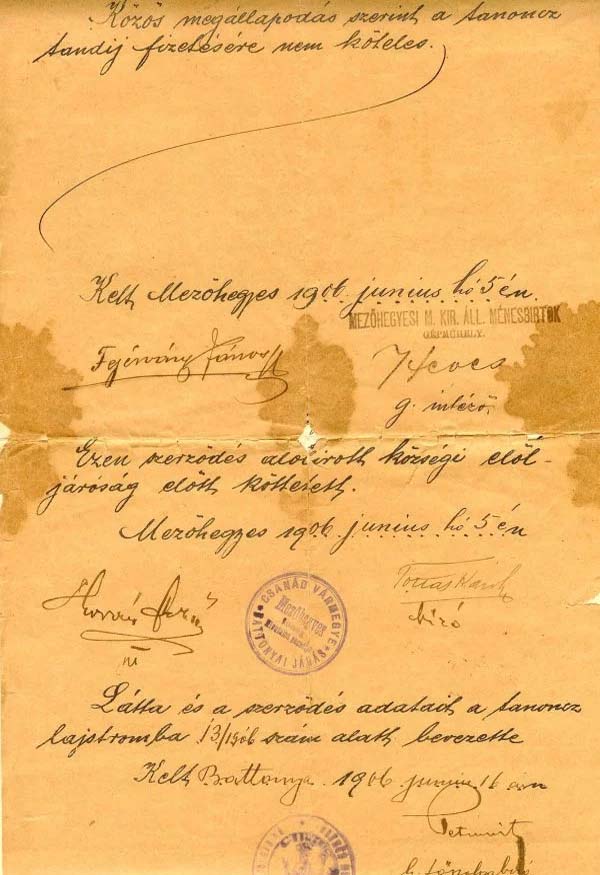 Közös megállapodás szerint a tanoncz
tandij fizetésére nem köteles.
Kelt Mezőhegyes 1906. junius hó 5 én.
MEZŐHEGYESI M. KIR. ÁLL. MÉNESBIRTOK
GÉPMŰHELY.
Fejérváry János
g. intéző
Ezen szerződés aloúirott községi elöl-
járóság előtt köttetett.
Mezőhegyes 1906 junius hó 5 én
biró
CSANÁD VÁRMEGYE
BATTONYAI JÁRÁS
Mezőhegyes
Látta és a szerződés adatait a tanoncz
lajstromba 13/1906 szám alatt bevezette
Kelt Battonya 1906 junius 16 án